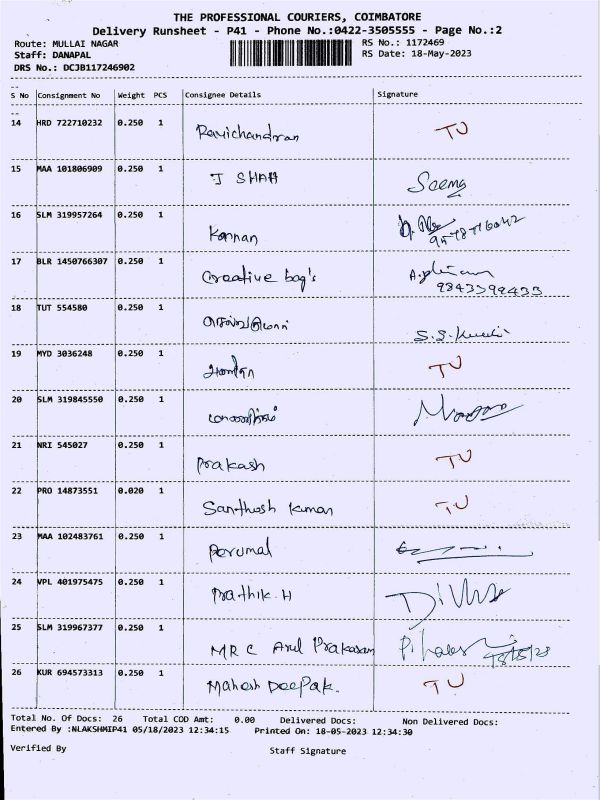 THE PROFESSIONAL COURIERS, COIMBATORE
Delivery Runsheet - P41 - Phone No.:0422-3505555 - Page No.:2
Route: MULLAI NAGAR RS No.: 1172469
Staff: DANAPAL RS Date: 18-May-2023
DRS No.: DCJB117246902
S No Consignment No Weight PCS Consignee Details Signature
14 HRD 722710232 0.250 1 Ravichandran TU
15 MAA 101806909 0.250 1 J SHAH Seema
16 SLM 319957264 0.250 1 Kannan
17 BLR 1450766307 0.250 1 Creative bag's
9843399433
18 TUT 554580 0.250 1
19 MYD 3036248 0.250 1 TU
20 SLM 319845550 0.250 1
21 NRI 545027 0.250 1 Prakash TU
22 PRO 14873551 0.020 1 Santhosh Kumar TU
23 MAA 102483761 0.250 1 Perumal
24 VPL 401975475 0.250 1 Prathik.H
25 SLM 319967377 0.250 1 MRC Arul Prakasam
26 KUR 694573313 0.250 1 Mahesh Deepak. TU
Total No. Of Docs: 26 Total COD Amt: 0.00 Delivered Docs: Non Delivered Docs:
Entered By :NLAKSHMIP41 05/18/2023 12:34:15 Printed On: 18-05-2023 12:34:30
Verified By Staff Signature